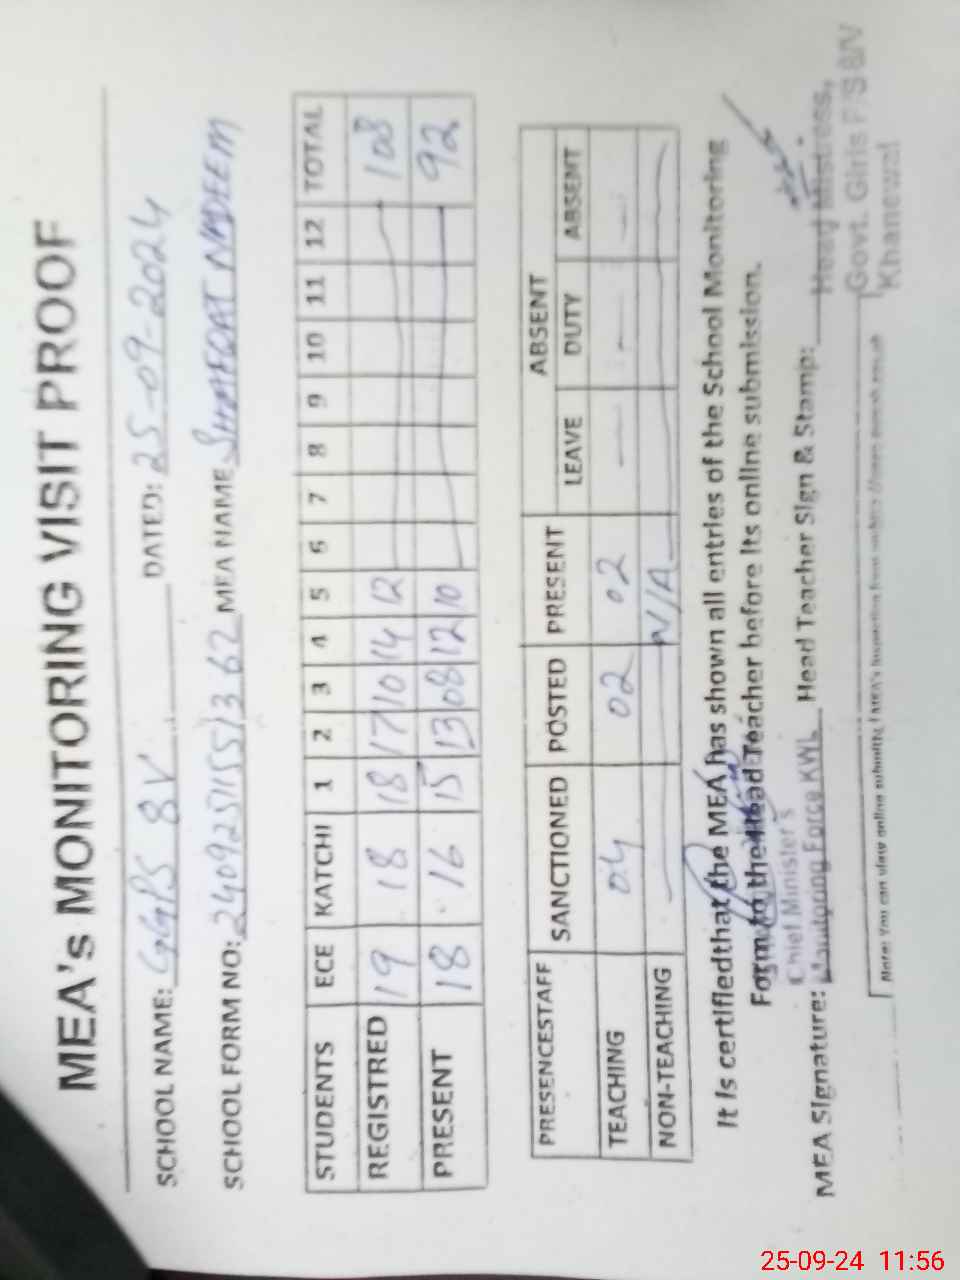 MEA's MONITORING VISIT PROOF
SCHOOL NAME: GGPS 8V DATED: 25-09-2024
SCHOOL FORM NO: MEA NAME SHAFQAT NADEEM
STUDENTS ECE KATCHI 1 2 3 4 5 6 7 8 9 10 11 12 TOTAL
REGISTRED 19 18 18 17 10 14 12 108
PRESENT 18 16 15 13 08 12 10 92
PRESENCESTAFF SANCTIONED POSTED PRESENT ABSENT
LEAVE DUTY ABSENT
TEACHING 04 02 02 — — —
NON-TEACHING N/A
It is certified that the MEA has shown all entries of the School Monitoring
Form to the Head Teacher before its online submission.
Chief Minister's
MEA Signature: Monitoring Force KWL Head Teacher Sign & Stamp: Head Mistress,
Govt. Girls P/S 8/V
Khanewal
Note: You can view online submitted MEA's Inspection
25-09-24 11:56